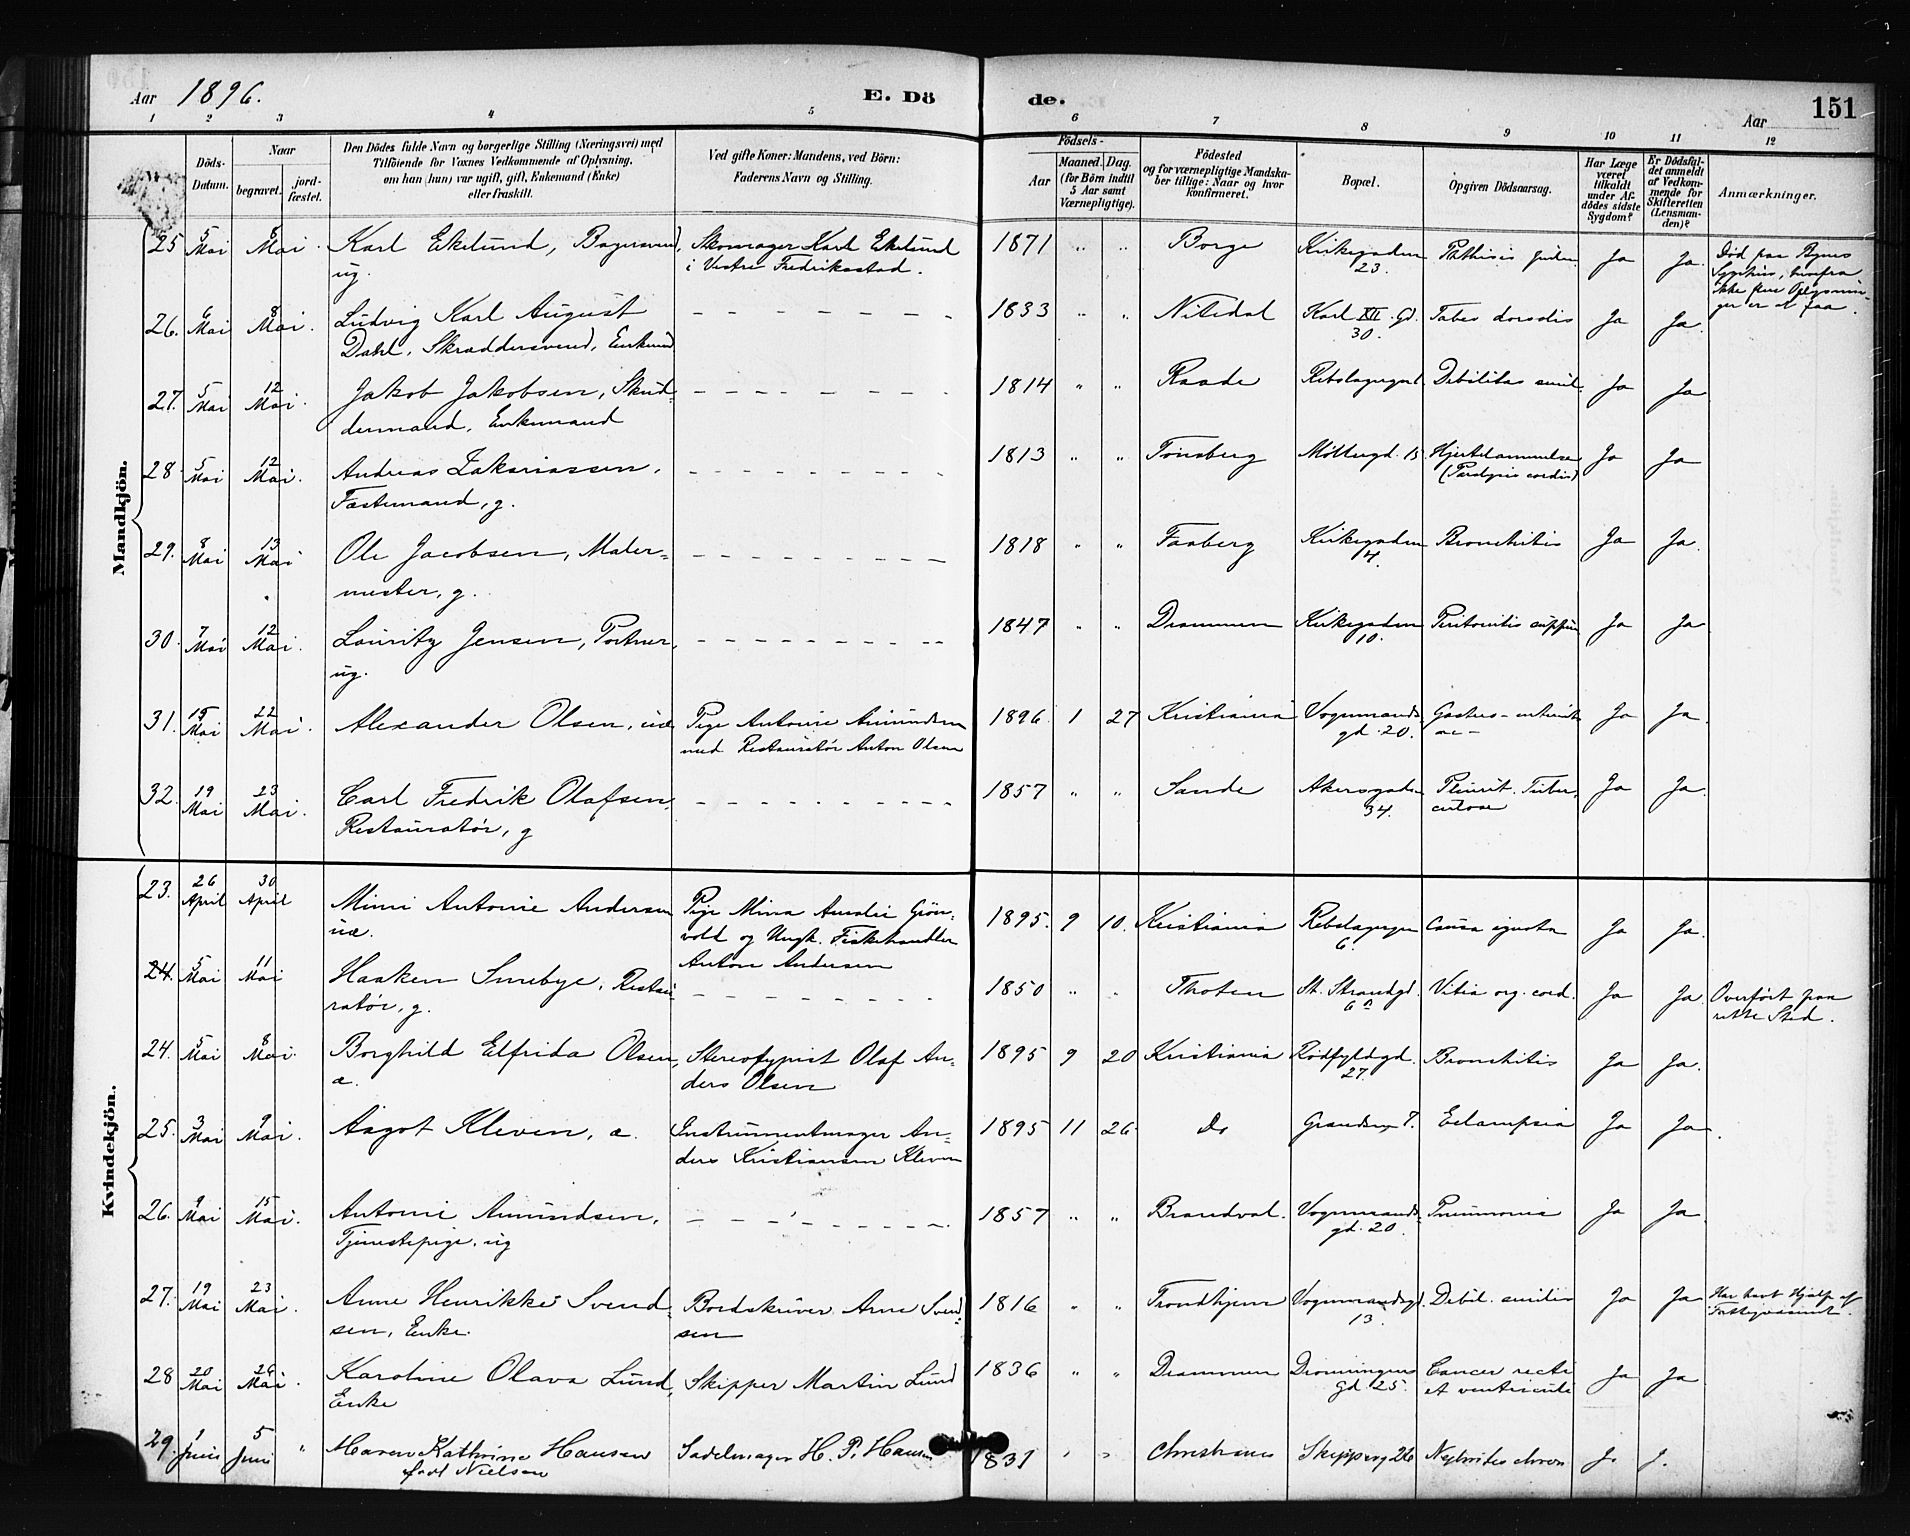 Aar 1896. E. Dö de. 151
Aar
1 2 3 4 5 6 7 8 9 10 11 12
Döds-Datum.
Naar
begravet.
jord-fæstet.
Den Dödes fulde Navn og borgerlige Stilling (Næringsvei) med
Tilföiende for Voxnes Vedkommende af Oplysning,
om han (hun) var ugift, gift, Enkemand (Enke)
eller fraskilt.
Ved gifte Koner: Mandens, ved Börn:
Faderens Navn og Stilling.
Födsels-
Aar
Maaned. Dag.
(for Börn indtil
5 Aar samt
Værnepligtige).
Födested
og for værnepligtige Mandska-
ber tillige: Naar og hvor
konfirmeret.
Bopæl.
Opgiven Dödsaarsag.
Har Læge
været
tilkaldt
under Af-
dödes sidste
Sygdom?
Er Dödsfal-
det anmeldt
af Vedkom-
mende for
Skifteretten
(Lensman-
den)?
Anmærkninger.
Mandkjön.
25 5 Mai 8 Mai. Karl Ekelund, Bagersvend, Skomager Karl Ekelund 1871 " " Borge Kirkegaden 23. Phthisis Ja Ja. Død paa Byens
ug. i Vestre Fredriksstad. Sygehus, hvorfra
ikke flere Oplysnin-
ger er at faa.
26. 6 Mai 8 Mai. Ludvig Karl August 1833 " " Nitedal Karl XII. Gd. 30. Tabes dorsalis Ja Ja.
Dahl, Skræddersvend, Enkemd
27. 5 Mai 12 Mai. Jakob Jakobsen, Skud- 1814 " " Raade Rebslagergd Debilitas senil. Ja Ja
dermand, Enkemand
28 5 Mai 12 Mai. Andreas Zakariassen, 1813 " " Tønsberg Møllergd. 15 Hjertelammelse Ja Ja
Fæstemand, g. (Paralysis cordis)
29. 8 Mai 13 Mai Ole Jacobsen, Maler- 1818 " " Faaberg Kirkegaden 14. Bronchitis Ja Ja.
mester, g.
30. 7 Mai 12 Mai. Lauritz Jensen, Portner, 1847 " " Drammen Kirkegaden 10. Peritonitis suppur Ja Ja
ug.
31. 15 Mai 22 Mai. Alexander Olsen, uæ Pige Antonie Amundsen 1896 1 27 Kristiania Vognmands- gd. 20. Gastro-enterit Ja Ja.
med Restauratør Anton Olsen ac-
32. 19 Mai 23 Mai. Carl Fredrik Olafsen, 1857 " " Sande Akersgaden 34. Pleurit. Tuber- Ja Ja.
Restauratør, g culose
Kvindekjön.
23. 26 April 30 April Mimi Antonie Andersen Pige Mina Amalie Grøn- 1895. 9 10. Kristiania Rebslagergen 6. Causa ignota Ja Ja.
uæ. vold og Ungk. Fiskehandler
Anton Andersen
24. 5 Mai 11 Mai Haaken Smebye, Restau- 1850 " " Thoten St. Strandgd. 6 a Vitia org. cord. Ja Ja. Overført paa
ratør, g. rette Sted.
24. 5 Mai 8 Mai. Borghild Elfrida Olsen, Stereotypist Olaf An- 1895 9 20 Kristiania Rødfyldgd. 27. Bronchitis Ja Ja.
æ. ders Olsen
25. 3 Mai 9 Mai. Aagot Kleven, æ. Instrumentmager An- 1895 11 26 Do Grændsen 7. Eclampsia Ja Ja.
ders Kristiansen Kleven
26. 9 Mai 15 Mai. Antonie Amundsen, 1857 " " Brandval. Vognmands- gd. 20. Pneumonia Ja Ja.
Tjenestepige. ug
27. 19 Mai 23 Mai. Anne Henrikke Svend- Bordskriver Arne Svend- 1816 " " Trondhjem Vognmandsgd. 13. Debil. senilis Ja Ja Har havt Hjælp af
sen, Enke. sen Fattigvæsenet.
28 20 Mai 26 Mai. Karoline Olava Lund, Skipper Martin Lund 1836 " " Drammen Dronningens Gd. 25. Cancer recti Ja Ja
Enke et ventriculi
29. 1 Juni 5 Juni " Maren Kathrine Hansen Sadelmager H. P. Hansen 1831 " " Christiania Skipperg 26 Nephritis chron J. J.
født Nielsen